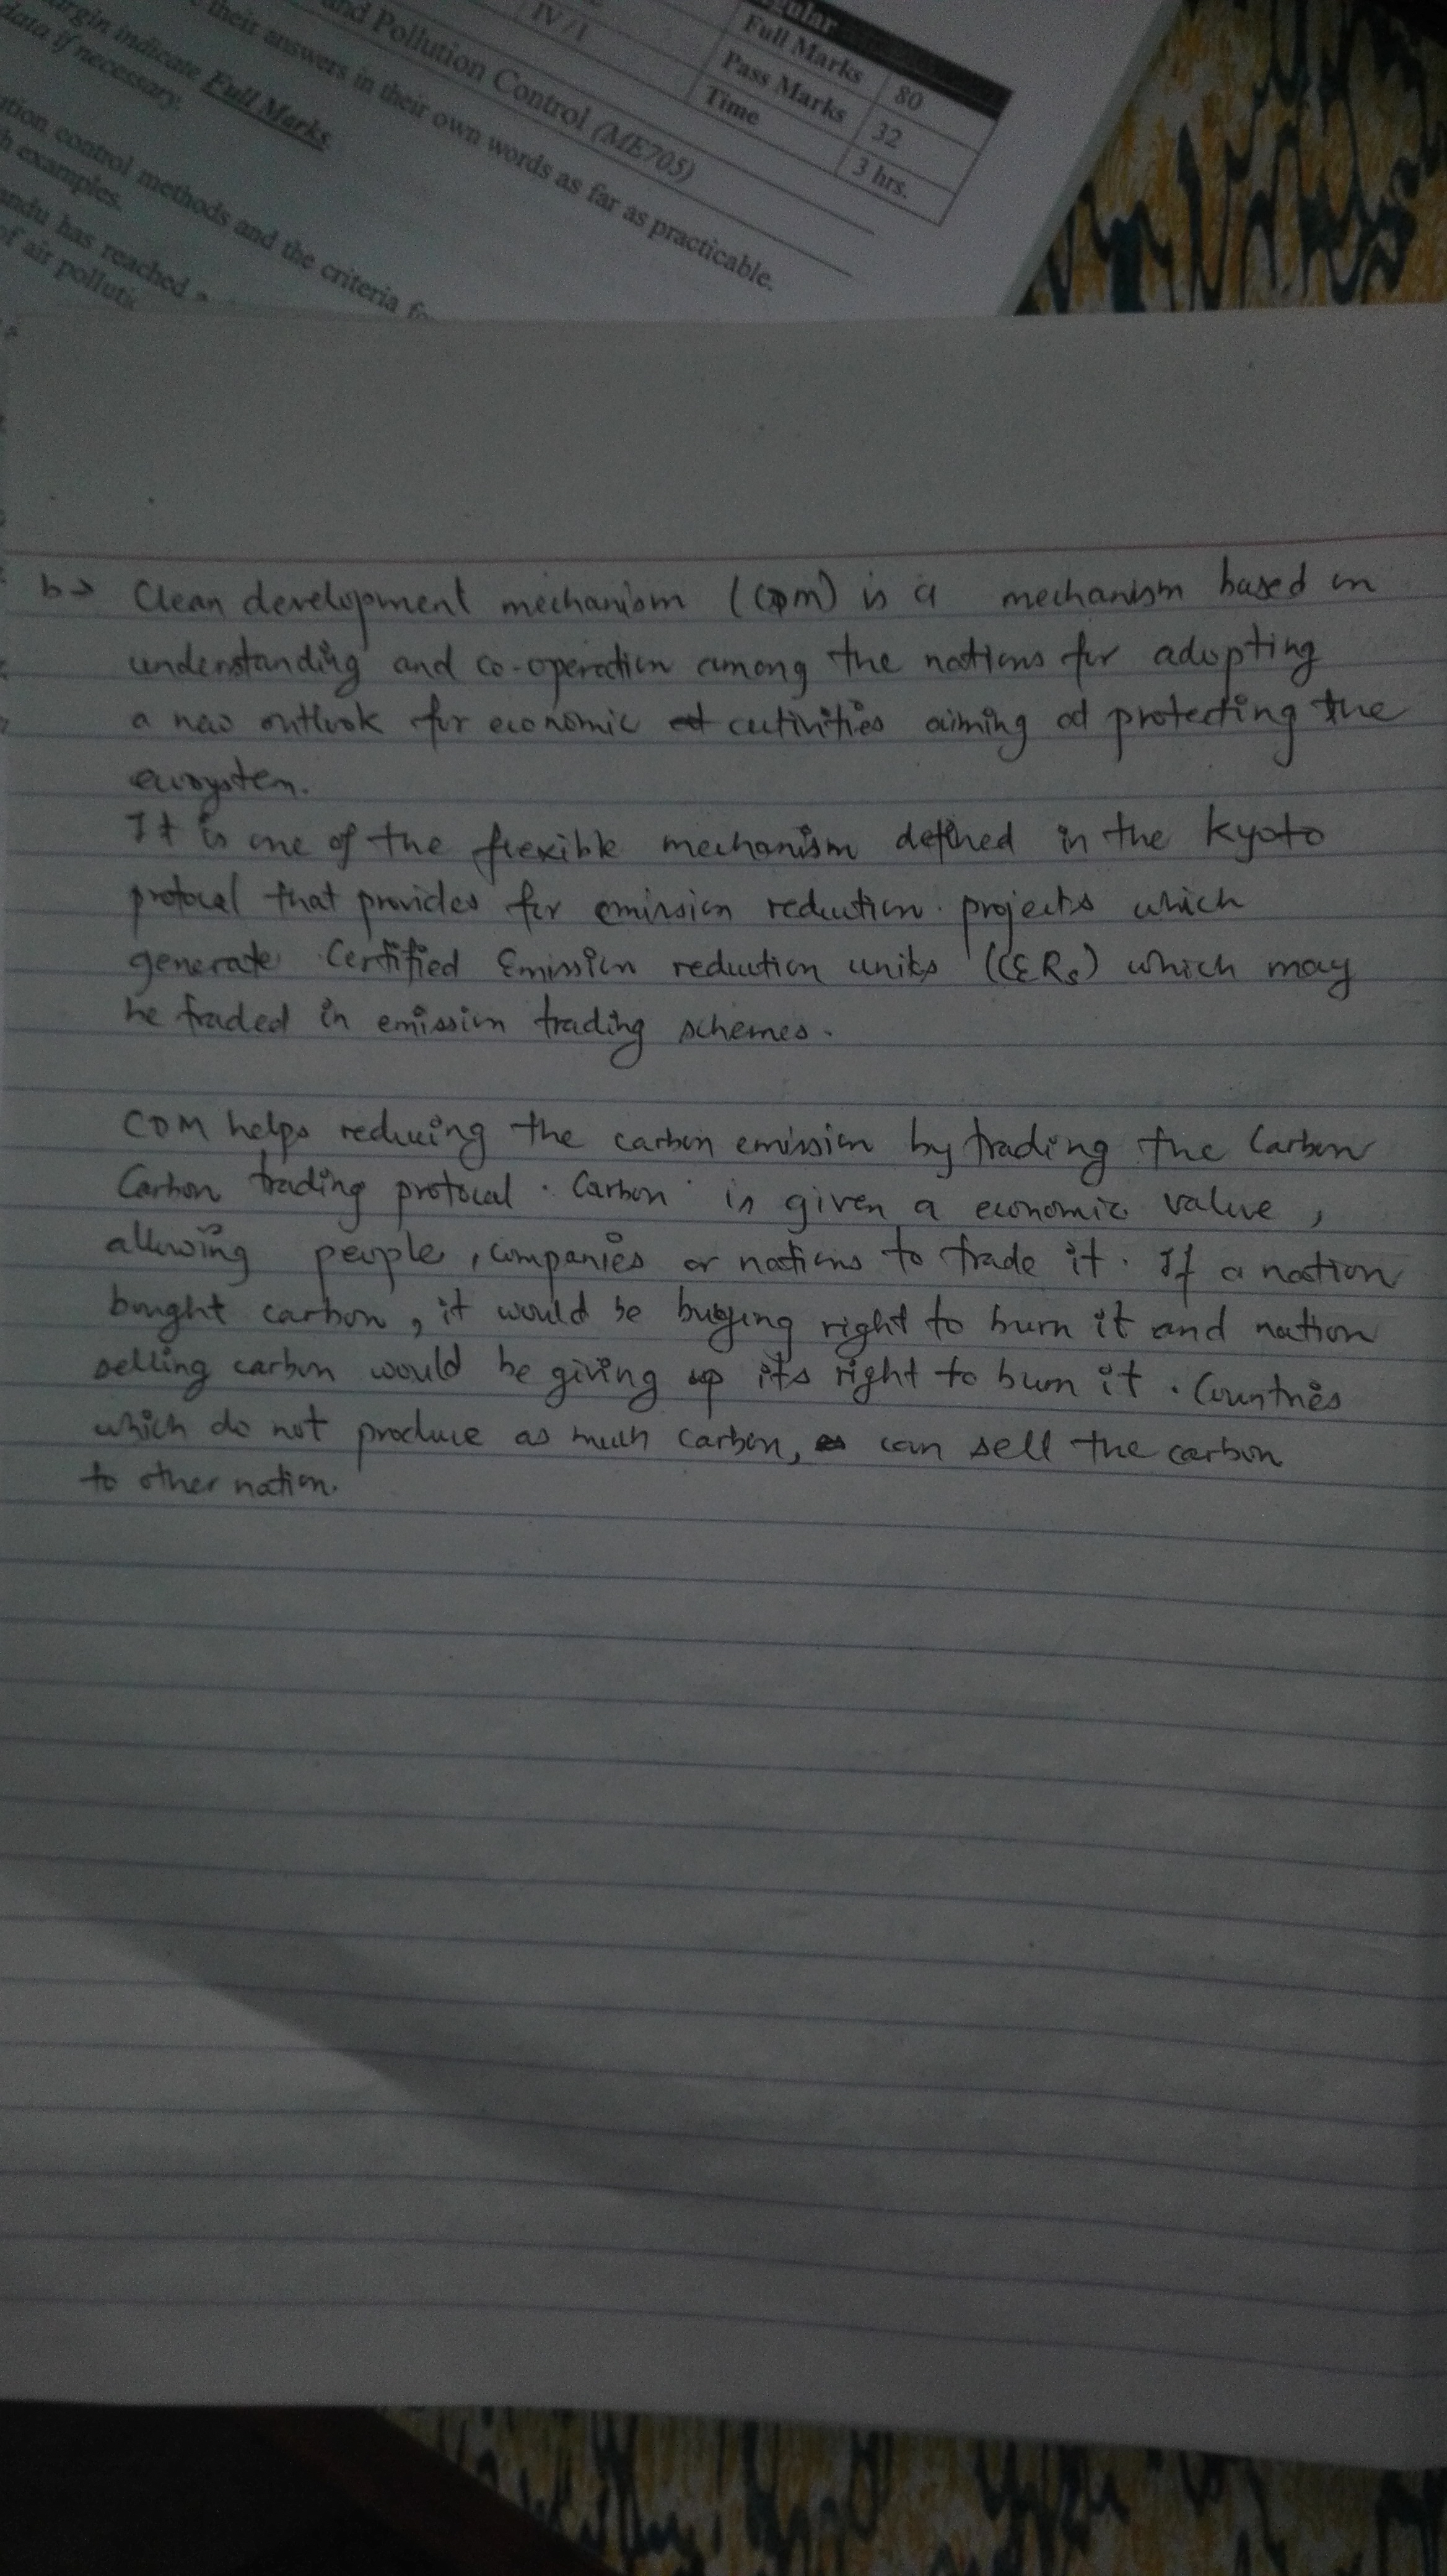 gular
Full Marks 80
Pass Marks 32
Time 3 hrs.
IV / I
and Pollution Control (ME705)
their answers in their own words as far as practicable.
margin indicate Full Marks
data if necessary.
control methods and the criteria
examples.
has reached
of air
b> Clean development mechanism (CDM) is a mechanism based in
understanding and co-operation among the nations for adopting
a new outlook for economic activities aiming at protecting the
ecosystem.
It is one of the flexible mechanism defined in the kyoto
protocal that provides for emission reduction projects which
generate Certified Emission reduction units (CERs) which may
be traded in emission trading schemes.
CDM helps reducing the carbon emission by trading the Carbon
Carbon trading protocal. Carbon is given a economic value,
allowing people, companies or nations to trade it. If a nation
bought carbon, it would be buying right to burn it and nation
selling carbon would be giving up its right to burn it. Countries
which do not produce as much carbon, can sell the carbon
to other nation.